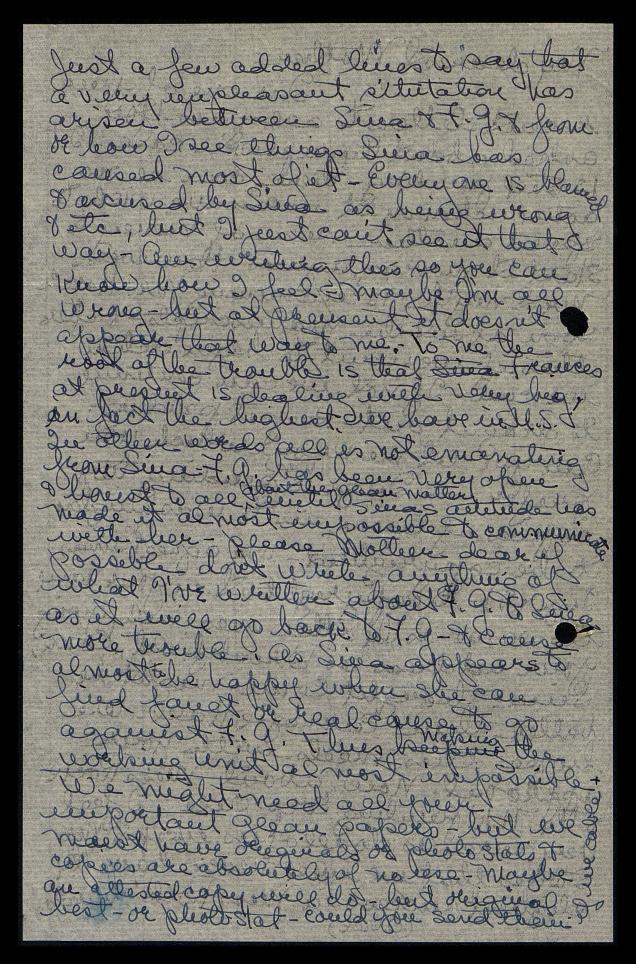 Just a few added lines to "say that
a very unpleasant situtation has
arisen between Sina & F.G. & from
or how I see things Sina has
caused most of it - Everyone is blamed
& accused by Sina as being wrong
& etc, but I just can't see it that
way - Am writing this so you can
know how I feel - maybe I'm all
wrong - but at pressent it doesn't
appear that way to me. - To me the
root of the trouble is that Sina Frances
at present is dealing with very big,
in fact the highest we have in U.S.
In other words all is not emanating
from Sina - F.G. has been very open
& honest to all about the glean matter
until Sinas attitude has
made it almost impossible to communicate
with her - please Mother dear if
possible don't write anything of
what I've written about F.G. to Sina
as it will go back to F.G - & cause
more trouble. As Sina appears to
almost be happy when she can
find fault or real cause to go
against F.G. Thus making the
working unit almost impossible -
We might need all your
important glean papers - but we
must have originals or photostats &
copies are absolutely of no use - Maybe
an attested copy will do - but original
best - or photostat - could you send them
if we cable +